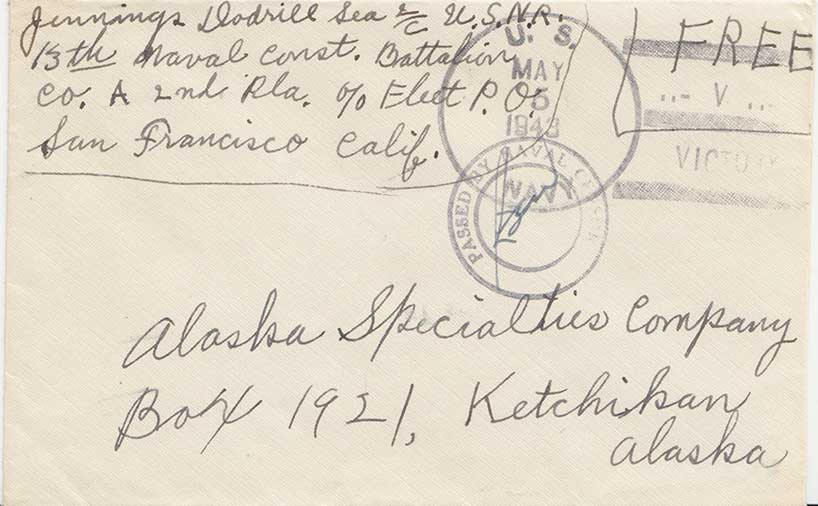 Jennings Dodrill Sea 2/c U.S.N.R.
13th Naval Const. Battalion
Co. A 2nd Pla. % Fleet P.O.
San Francisco Calif.
U. S.
MAY
5
1943
NAVY
FREE
..- V ...
VICTORY
PASSED BY NAVAL CENSOR
Alaska Specialties Company
Box 1921, Ketchikan
Alaska